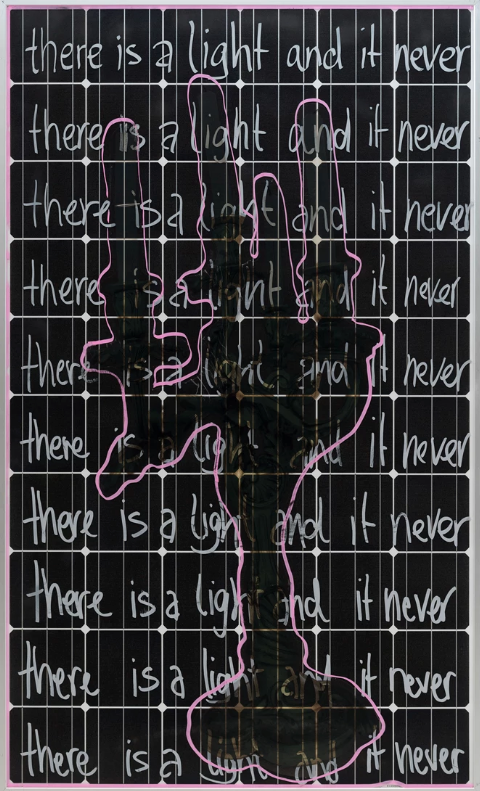 there is a light and it never
there is a light and it never
there is a light and it never
there is a light and it never
there is a light and it never
there is a light and it never
there is a light and it never
there is a light and it never
there is a light and it never
there is a light and it never